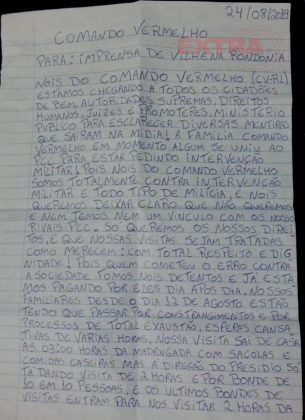 24/08/2019
COMANDO VERMELHO
EXTRA
PARA: IMPRENSA DE VILHENA RONDONIA
NOIS DO COMANDO VERMELHO (CV-RL)
ESTAMOS CHEGANDO A TODOS OS CIDADÕES
DE BEM, AUTORIDADES SUPREMAS, DIREITOS
HUMANOS, JUIZES E PROMOTERES, MINISTERIO
PUBLICO PARA ESCLARECER DIVERSAS MENTIRAS
QUE SAIRAM NA MIDIA! A FAMILIA COMANDO
VERMELHO EM MOMENTO ALGUM SE UNIU AO
PCC PARA ESTAR PEDINDO INTERVENÇÃO
MILITAR! POIS NOIS DO COMANDO VERMELHO
SOMOS TOTALMENTE CONTRA INTERVENÇÃO
MILITAR E TODO TIPO DE MILIGIA, E NOIS
QUEREMOS DEIXAR CLARO QUE NÃO QUEREMOS
E NEM TEMOS NEM UM VINCULO COM OS NOSSO
RIVAIS PCC. SO QUEREMOS OS NOSSOS DIREI
TOS, E QUE NOSSAS VISITAS SEJAM TRATADAS
COMO MERECEM: COM TOTAL RESPEITO E DIG
NIDADE! POIS QUEM COMETEU O ERRO CONTRA
A SOCIEDADE FOMOS NOIS DETENTOS E JA ESTA
MOS PAGANDO POR ELES DIA APOS DIA. NOSSOS
FAMILIARES DESDE O DIA 12 DE AGOSTO ESTÃO
TENDO QUE PASSAR POR CONSTRANGIMENTOS E POR
PROCESSOS DE TOTAL EXAUSTÃO, ESPERAS CANSA
TIVAS DE VARIAS HORAS, NOSSA VISITA SAI DE CASA
AS 03:00 HORAS DA MADRUGADA COM SACOLAS E
COMIDAS CASEIRAS MAS A DIREÇÃO DO PRESIDIO SO
TA DANDO VISITA DE 2 HORAS E POR BONDE DE
10 EM 10 PESSOAS, E OS ULTIMOS BONDES DE
VISITAS ENTRAM PARA NOS VISITAR 2 HORAS DA